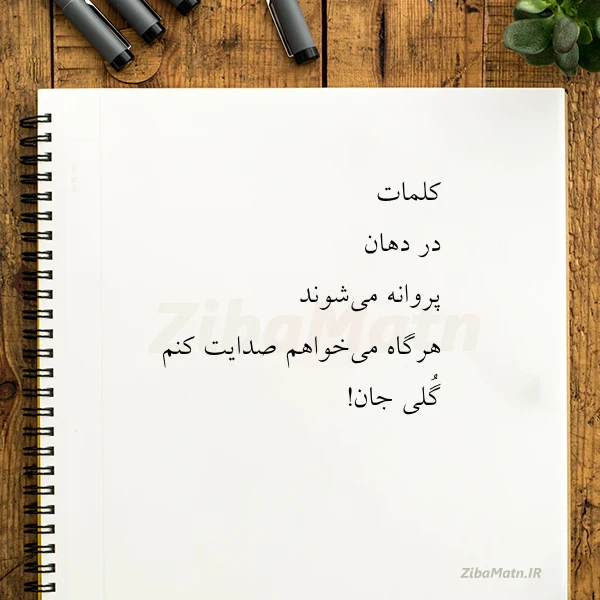 کلمات
در دهان
پروانه می‌شوند
هرگاه می‌خواهم صدایت کنم
گُلی جان!
ZibaMatn
ZibaMatn.IR